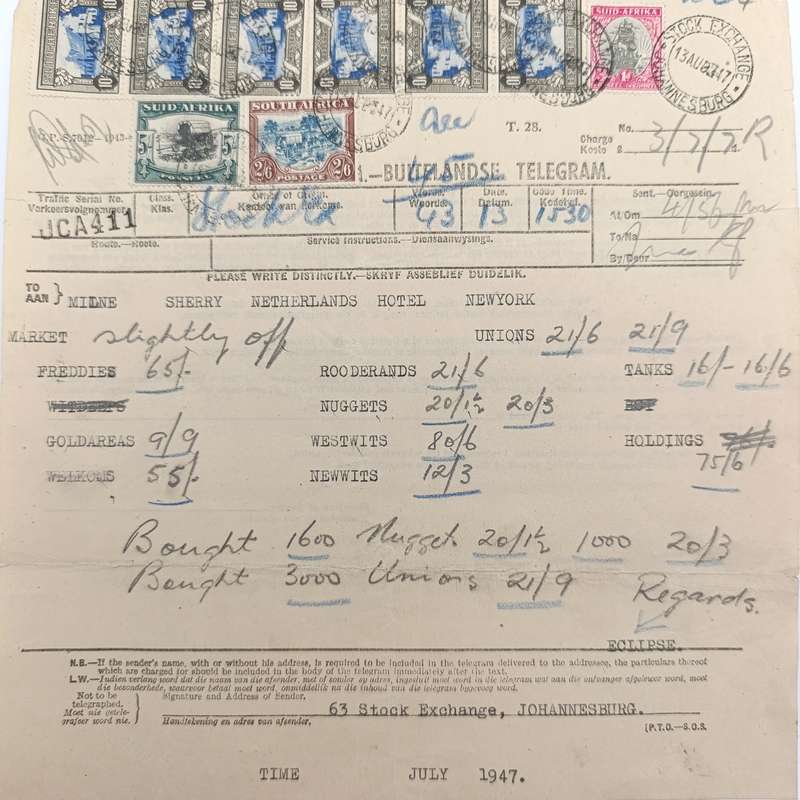 SUID-AFRIKA
STOCK EXCHANGE
13 AUG 47
JOHANNESBURG
SUID-AFRIKA
5/-
SOUTH AFRICA
2/6 POSTAGE 2/6
T. 28.
Charge
Koste
No. 3/7/7 R
BUITELANDSE TELEGRAM.
Traffic Serial No.
Verkeersvolgnommer
JCA411
Class.
Klas.
Office of Origin.
Kantoor van Herkoms.
Words.
Woorde.
43
Date.
Datum.
13
Code Time.
Kodetyd.
1530
Sent.—Oorgesein.
At/Om
To/Na
By/Deur
Route.—Roete.
Service Instructions.—Diensaanwysings.
PLEASE WRITE DISTINCTLY.—SKRYF ASSEBLIEF DUIDELIK.
TO
AAN } MILNE SHERRY NETHERLANDS HOTEL NEWYORK
MARKET slightly off UNIONS 21/6 21/9
FREDDIES 65/- ROODERANDS 21/6 TANKS 16/- 16/6
WITDEEPS NUGGETS 20/1½ 20/3
GOLDAREAS 9/9 WESTWITS 80/6 HOLDINGS
75/6
WELKOMS 55/- NEWWITS 12/3
Bought 1600 Nuggets 20/1½ 1000 20/3
Bought 3000 Unions 21/9 Regards.
ECLIPSE.
N.B.—If the sender's name, with or without his address, is required to be included in the telegram delivered to the addressee, the particulars thereof
which are charged for should be included in the body of the telegram immediately after the text.
L.W.—Indien verlang word dat die naam van die afsender, met of sonder sy adres, ingesluit moet word in die telegram wat aan die ontvanger afgelewer word, moet
die besonderhede, waarvoor betaal moet word, onmiddellik na die inhoud van die telegram ingevoeg word.
Not to be
telegraphed.
Moet nie getele-
grafeer word nie.
Signature and Address of Sender.
63 Stock Exchange, JOHANNESBURG.
Handtekening en adres van afsender.
[P.T.O.—S.O.S.
TIME JULY 1947.